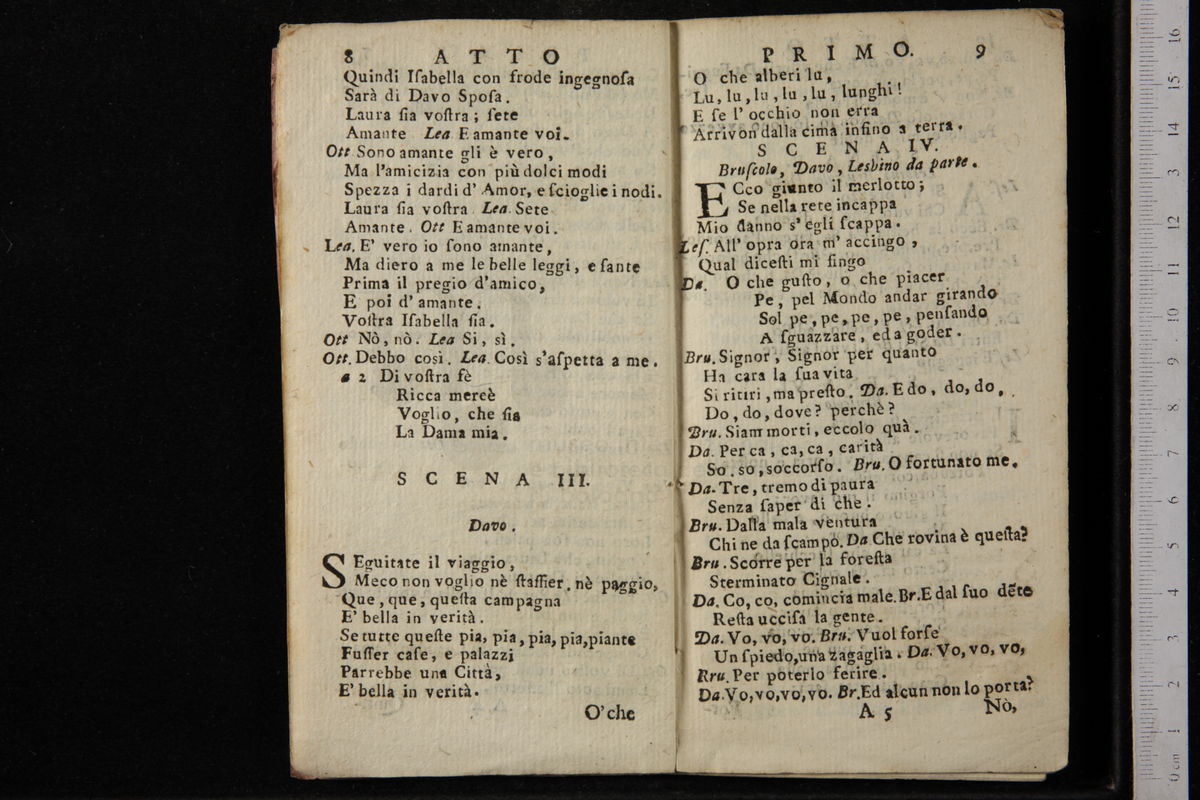 8 ATTO
Quindi Iſabella con frode ingegnoſa
Sarà di Davo Spoſa.
Laura ſia voſtra; ſete
Amante Lea E amante voi.
Ott Sono amante gli è vero,
Ma l'amicizia con più dolci modi
Spezza i dardi d' Amor, e ſcioglie i nodi.
Laura ſia voſtra. Lea. Sete
Amante. Ott E amante voi.
Lea. E' vero io ſono amante,
Ma diero a me le belle leggi, e ſante
Prima il pregio d'amico,
E poi d' amante.
Voſtra Iſabella ſia.
Ott Nò, nò. Lea Si, sì.
Ott. Debbo così. Lea. Così s'aſpetta a me.
a 2 Di voſtra fè
Ricca mercè
Voglio, che ſia
La Dama mia.
SCENA III.
Davo.
SEguitate il viaggio,
Meco non voglio nè ſtaffier, nè paggio,
Que, que, queſta campagna
E' bella in verità.
Se tutte queſte pia, pia, pia, pia, piante
Fuſſer caſe, e palazzi
Parrebbe una Città,
E' bella in verità.
O' che
PRIMO. 9
O che alberi lu,
Lu, lu, lu, lu, lu, lunghi!
E ſe l' occhio non erra
Arrivon dalla cima inſino a terra.
SCENA IV.
Bruſcolo, Davo, Lesbino da parte.
ECco giunto il merlotto;
Se nella rete incappa
Mio danno s' egli ſcappa.
Leſ. All' opra ora m' accingo,
Qual diceſti mi fingo
Da. O che guſto, o che piacer
Pe, pel Mondo andar girando
Sol pe, pe, pe, pe, penſando
A ſguazzare, ed a goder.
Bru. Signor, Signor per quanto
Ha cara la ſua vita
Si ritiri, ma preſto. Da. E do, do, do,
Do, do, dove? perchè?
Bru. Siam morti, eccolo quà.
Da. Per ca, ca, ca, carità
So. so, soccorſo. Bru. O fortunato me.
Da. Tre, tremo di paura
Senza ſaper di che.
Bru. Dalla mala ventura
Chi ne da ſcampo. Da Che rovina è queſta?
Bru. Scorre per la foreſta
Sterminato Cignale.
Da. Co, co, comincia male. Br. E dal ſuo dēte
Reſta ucciſa la gente.
Da. Vo, vo, vo. Bru. Vuol forſe
Un ſpiedo, una zagaglia. Da. Vo, vo, vo,
Bru. Per poterlo ferire.
Da. Vo, vo, vo, vo. Br. Ed alcun non lo porta?
A 5 Nò,